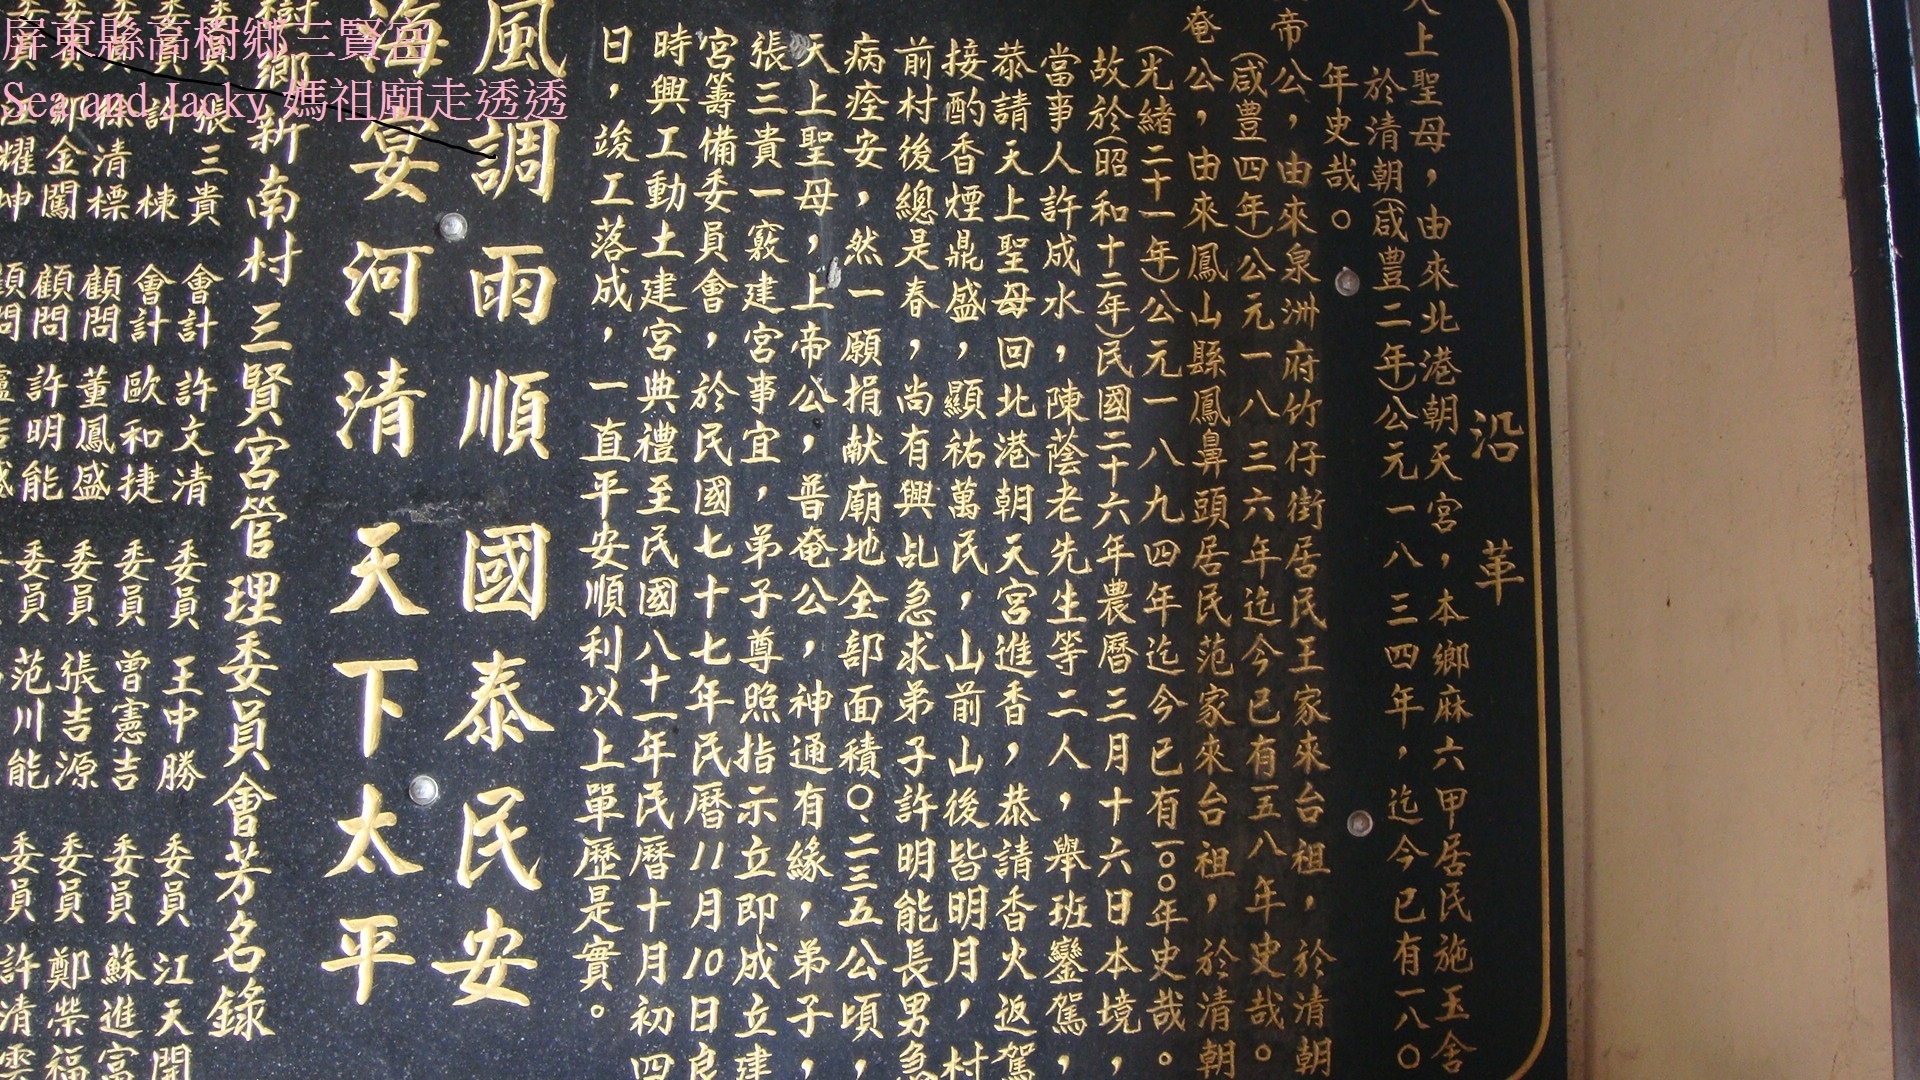 屏東縣高樹鄉三賢宮
Sea and Jacky 媽祖廟走透透
沿革
上聖母，由來北港朝天宮，本鄉麻六甲居民施玉舍
於清朝(咸豊二年)公元一八三四年，迄今已有一八〇
年史哉。
帝公，由來泉洲府竹仔街居民王家來台祖，於清朝
(咸豊四年)公元一八三六年迄今已有一五八年史哉。
奄公，由來鳳山縣鳳鼻頭居民范家來台祖，於清朝
(光緒二十一年)公元一八九四年迄今已有一〇〇年史哉。
故於(昭和十二年)民國二十六年農曆三月十六日本境，
當事人許成水，陳蔭老先生等二人，舉班鑾駕，
恭請天上聖母回北港朝天宮進香，恭請香火返駕
接酌香煙鼎盛，顯祐萬民，山前山後皆明月，村
前村後總是春，尚有興乩急求弟子許明能長男急
病痊安，然一願捐献廟地全部面積〇.二三五公頃，
天上聖母，上帝公，普奄公，神通有緣，弟子，
張三貴一竅建宮事宜，弟子尊照指示立即成立建
宮籌備委員會，於民國七十七年民曆11月10日良
時興工動土建宮典禮至民國八十一年民曆十月初四
日，竣工落成，一直平安順利以上單歷是實。
風調雨順國泰民安
海宴河清天下太平
樹鄉新南村三賢宮管理委員會芳名錄
張三貴 會計 許文清 委員 王中勝 委員 江天開
許棟 會計 歐和捷 委員 曾憲吉 委員 蘇進富
徐清標 顧問 董鳳盛 委員 張吉源 委員 鄭柴福
邱金闖 顧問 許明能 委員 范川能 委員 許清雲
耀坤 顧問